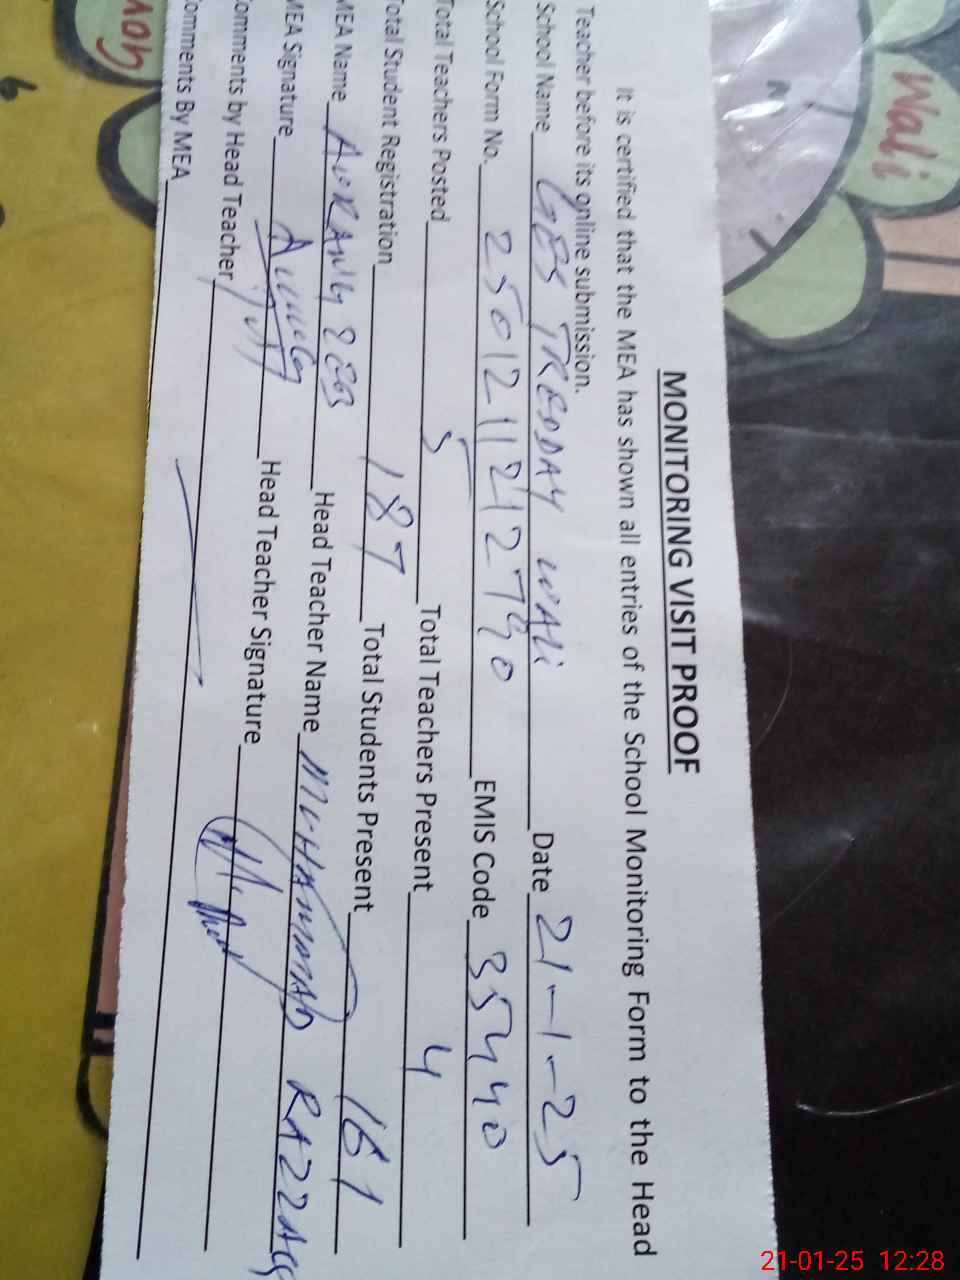 MONITORING VISIT PROOF
It is certified that the MEA has shown all entries of the School Monitoring Form to the Head
Teacher before its online submission.
School Name GPS TREODAY WALI Date 21-1-25
School Form No. 2501211212790 EMIS Code 35440
Total Teachers Posted 5 Total Teachers Present 4
Total Student Registration 187 Total Students Present 161
MEA Name AURANG ZEB Head Teacher Name MUHAMMAD RAZZAQ
MEA Signature Head Teacher Signature
Comments by Head Teacher
Comments By MEA
Wali
21-01-25 12:28